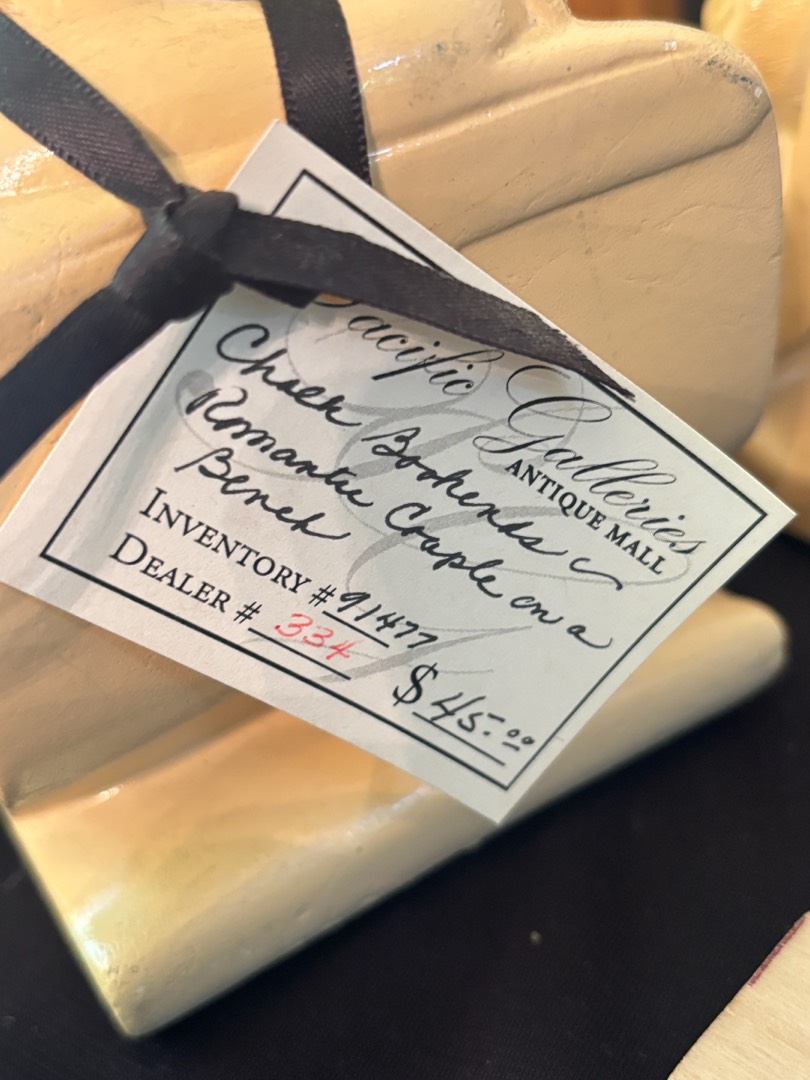 Pacific Galleries
ANTIQUE MALL
Chalk Bookends ~
Romantic Couple on a
Bench
INVENTORY # 91477
DEALER # 334
$ 45.00